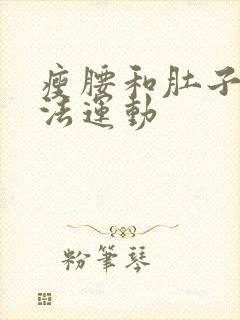 瘦腰和肚子
法運動
粉筆琴